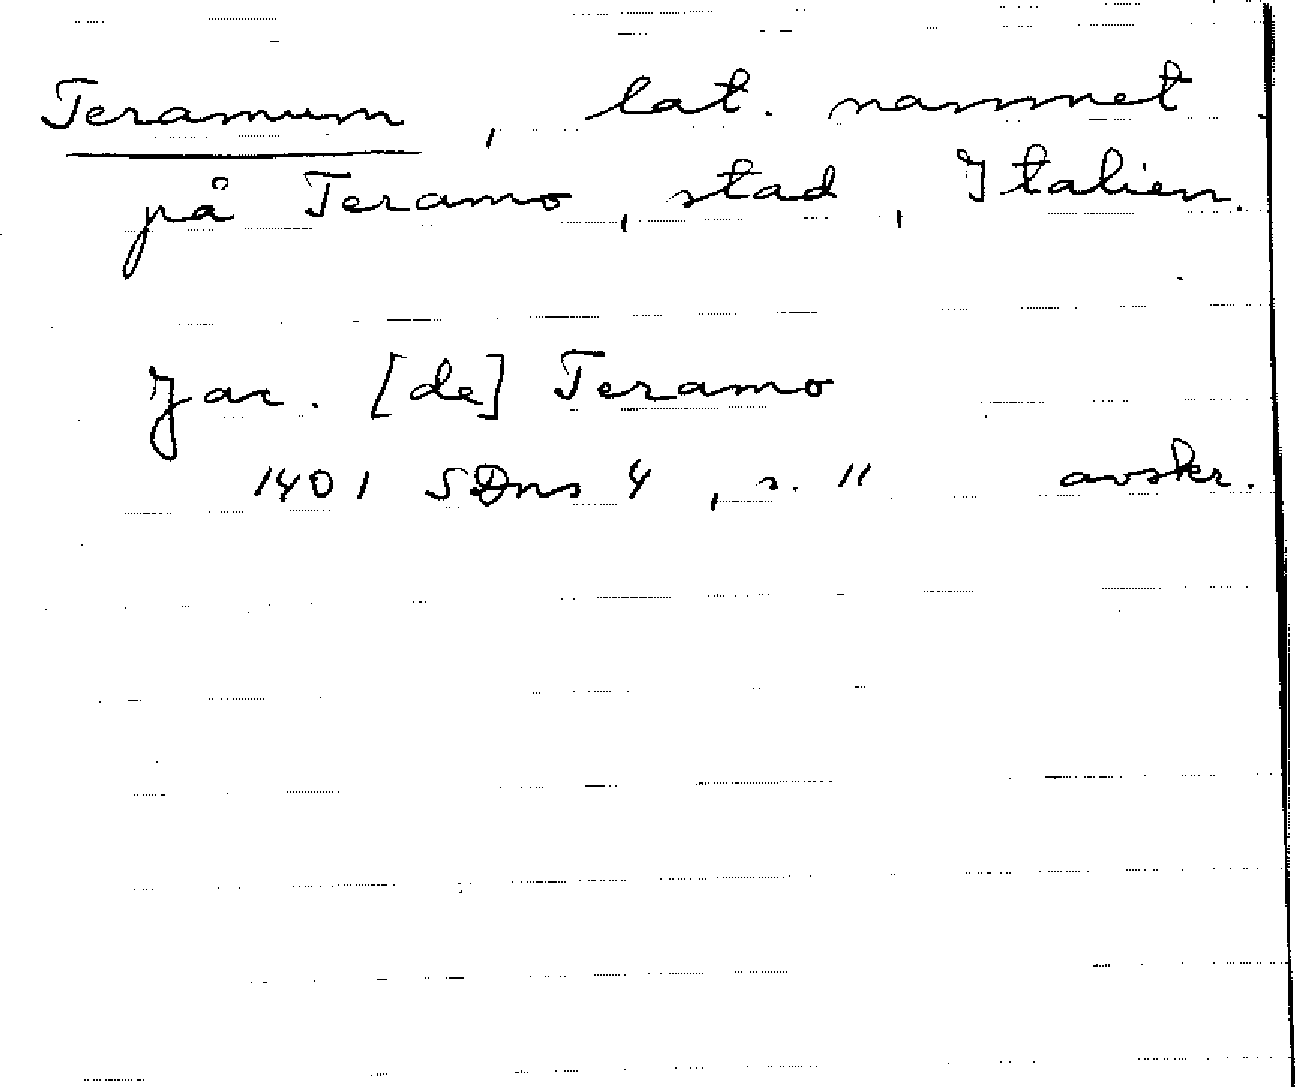 Teramum, lat. namnet
på Teramo, stad, Italien.
Jac. [de] Teramo
1401 SDns 4, s. 11 avskr.